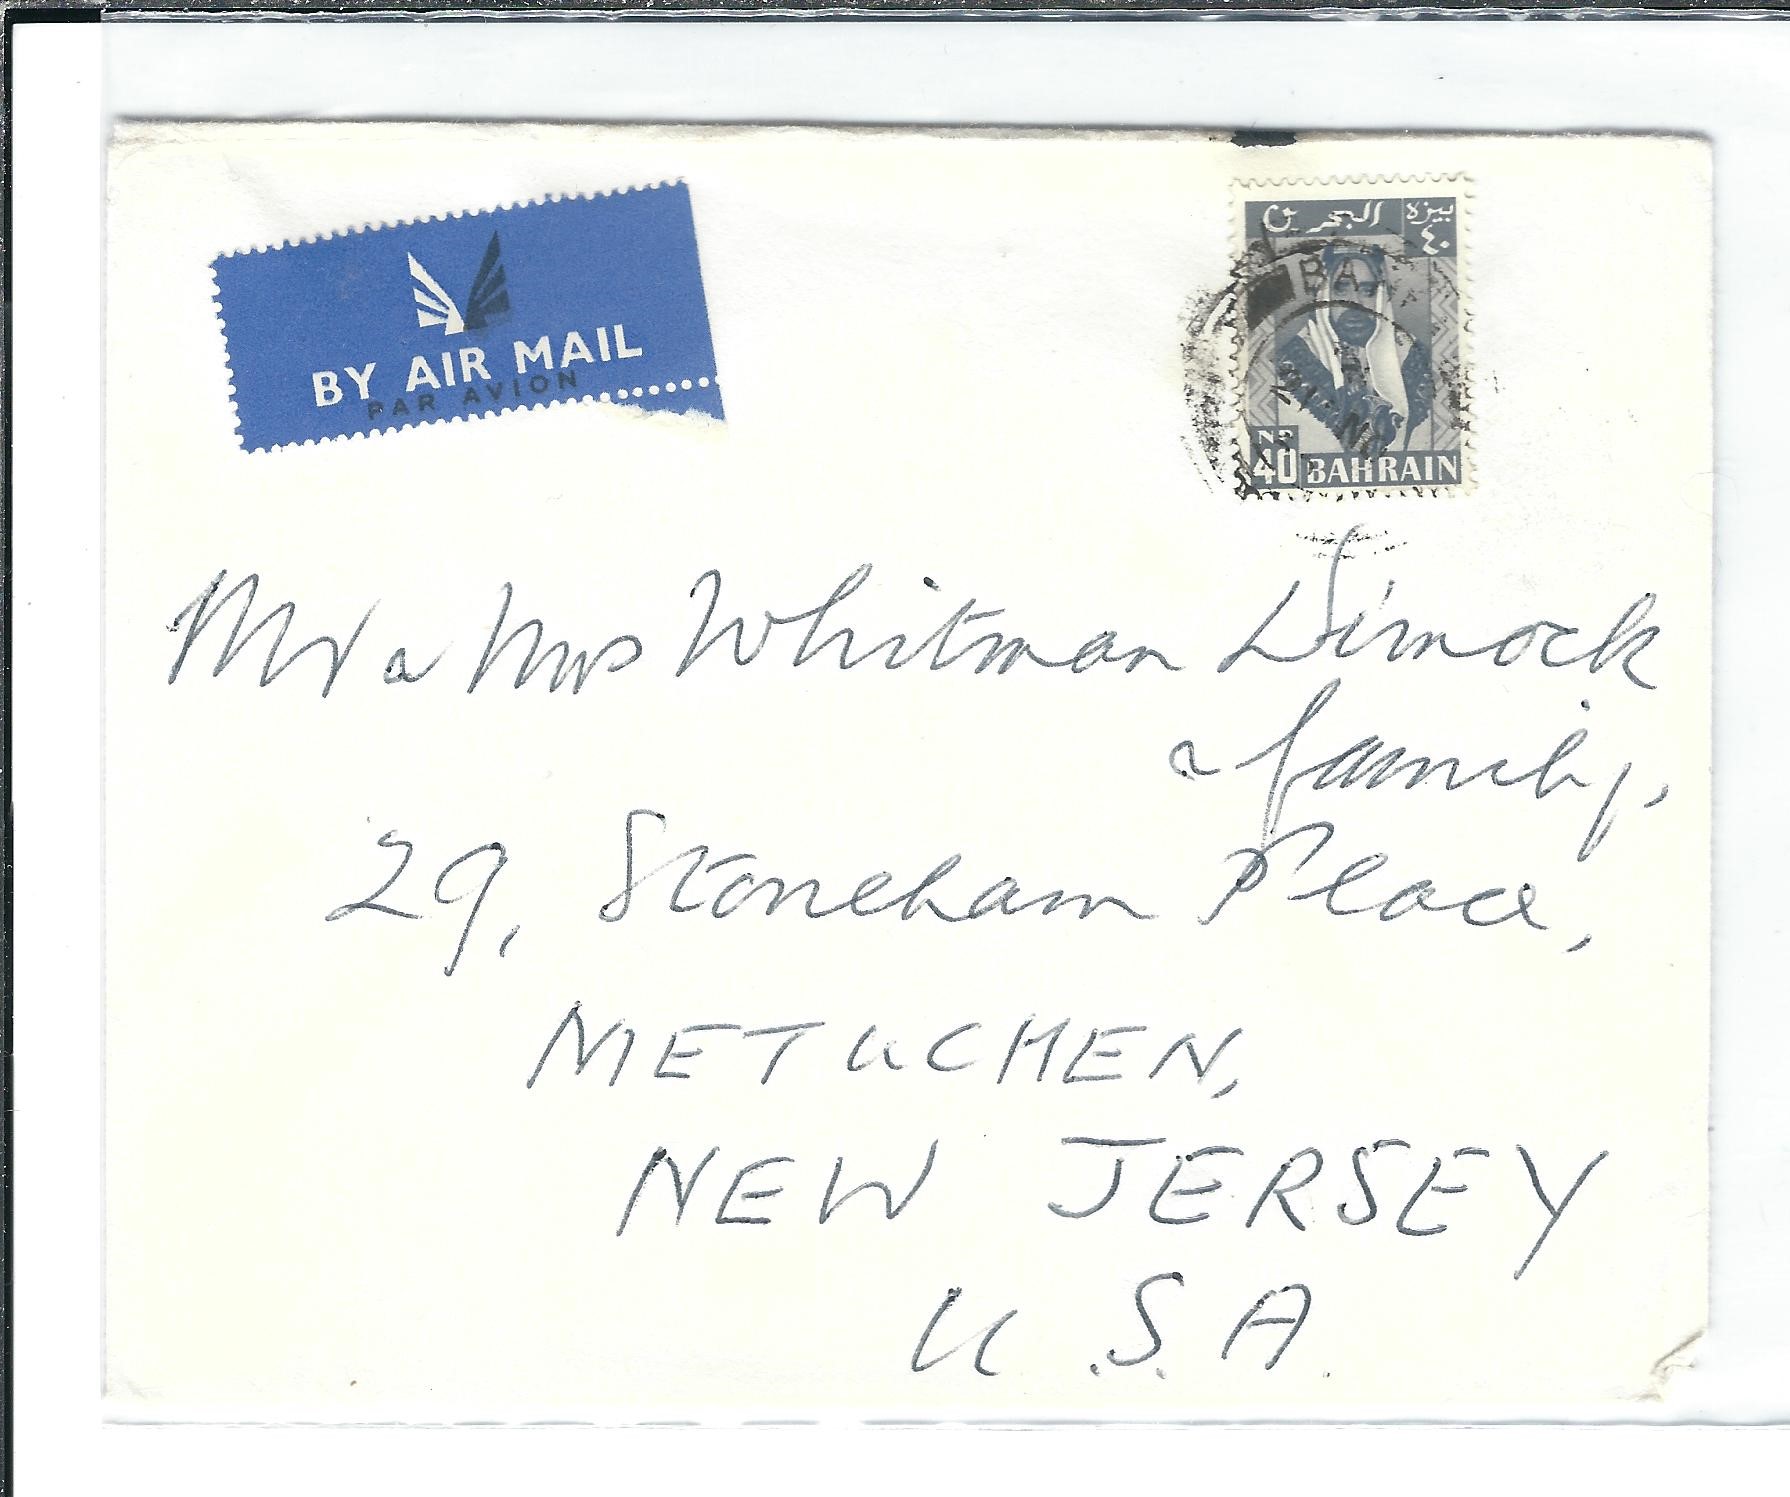 BY AIR MAIL
PAR AVION
البحرين
بيزة
٤٠
NP
40 BAHRAIN
Mr & Mrs Whitman Dimock
& family,
29, Stoneham Place,
METUCHEN,
NEW JERSEY
U.S.A.